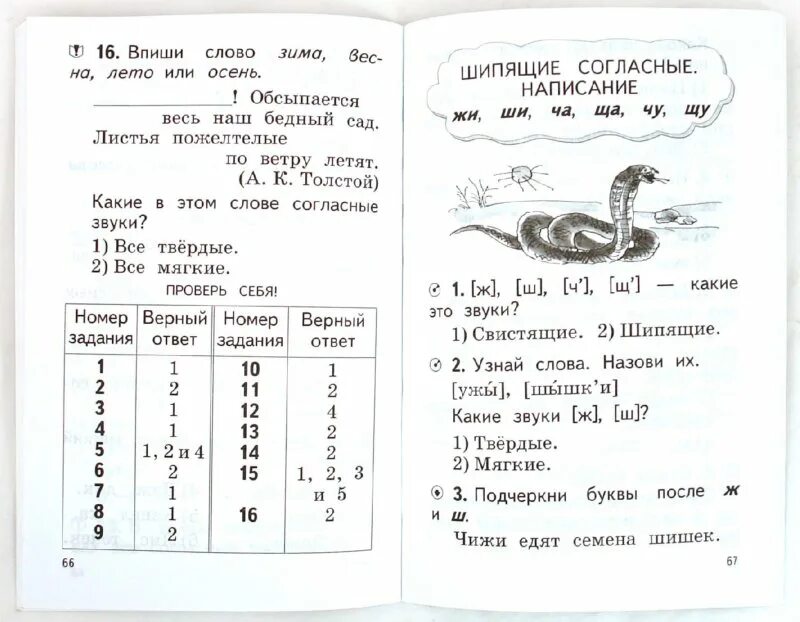 16. Впиши слово зима, вес-
на, лето или осень.
____________! Обсыпается
весь наш бедный сад.
Листья пожелтелые
по ветру летят.
(А. К. Толстой)
Какие в этом слове согласные
звуки?
1) Все твёрдые.
2) Все мягкие.
ПРОВЕРЬ СЕБЯ!
Номер задания Верный ответ Номер задания Верный ответ
1 1 10 1
2 2 11 2
3 1 12 4
4 1 13 2
5 1, 2 и 4 14 2
6 2 15 1, 2, 3
7 1 и 5
8 1 16 2
9 2
66
ШИПЯЩИЕ СОГЛАСНЫЕ.
НАПИСАНИЕ
жи, ши, ча, ща, чу, щу
1. [ж], [ш], [ч’], [щ’] — какие
это звуки?
1) Свистящие. 2) Шипящие.
2. Узнай слова. Назови их.
[ужы́], [шы́шк’и]
Какие звуки [ж], [ш]?
1) Твёрдые.
2) Мягкие.
3. Подчеркни буквы после ж
и ш.
Чижи едят семена шишек.
67